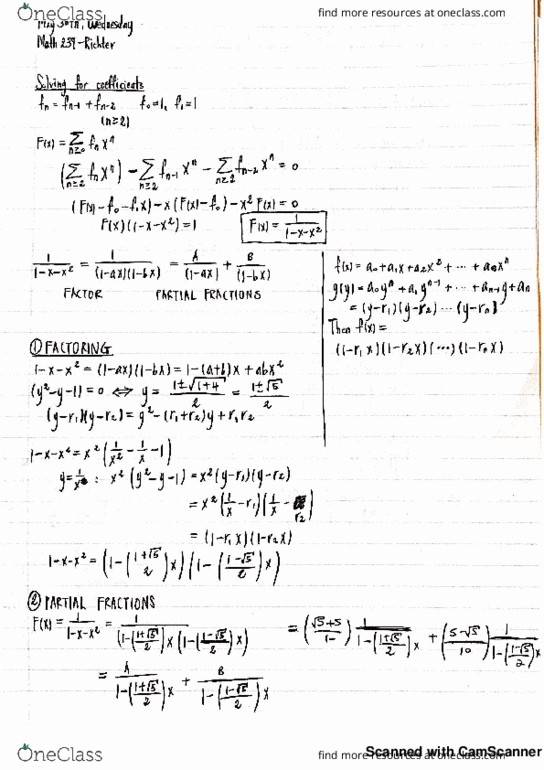 OneClass
find more resources at oneclass.com
May 30th, Wednesday
Math 239-Richter
Solving for coefficients
fₙ = fₙ₋₁ + fₙ₋₂ f₀=1, f₁=1
(n≥2)
F(x) = Σ_{n≥0} fₙxⁿ
(Σ_{n≥2} fₙxⁿ) - Σ_{n≥2} fₙ₋₁xⁿ - Σ_{n≥2} fₙ₋₂xⁿ = 0
(F(x) - f₀ - f₁x) - x(F(x) - f₀) - x²F(x) = 0
F(x)(1-x-x²) = 1
F(x) = 1/(1-x-x²)
1/(1-x-x²) = 1/((1-ax)(1-bx)) = A/(1-ax) + B/(1-bx)
FACTOR PARTIAL FRACTIONS
f(x) = a₀+a₁x+a₂x²+ ⋯ +aₙxⁿ
g(y) = a₀yⁿ+a₁yⁿ⁻¹+ ⋯ +aₙ₋₁y+aₙ
= (y-r₁)(y-r₂) ⋯ (y-rₙ)
Then f(x) =
(1-r₁x)(1-r₂x)(⋯)(1-rₙx)
① FACTORING
1-x-x² = (1-ax)(1-bx) = 1-(a+b)x + abx²
(y²-y-1) = 0 ⟺ y = (1±√(1+4))/2 = (1±√5)/2
(y-r₁)(y-r₂) = y² - (r₁+r₂)y + r₁r₂
1-x-x² = x²(1/x² - 1/x - 1)
y=1/x : x²(y²-y-1) = x²(y-r₁)(y-r₂)
= x²(1/x - r₁)(1/x - r₂)
= (1-r₁x)(1-r₂x)
1-x-x² = (1-((1+√5)/2)x)(1-((1-√5)/2)x)
② PARTIAL FRACTIONS
F(x) = 1/(1-x-x²) = 1/((1-((1+√5)/2)x)(1-((1-√5)/2)x)
= A/(1-((1+√5)/2)x) + B/(1-((1-√5)/2)x)
= ((√5+5)/1-) 1/(1-((1+√5)/2)x) + ((5-√5)/10) 1/(1-((1-√5)/2)x
Scanned with CamScanner
OneClass
find more resources at oneclass.com